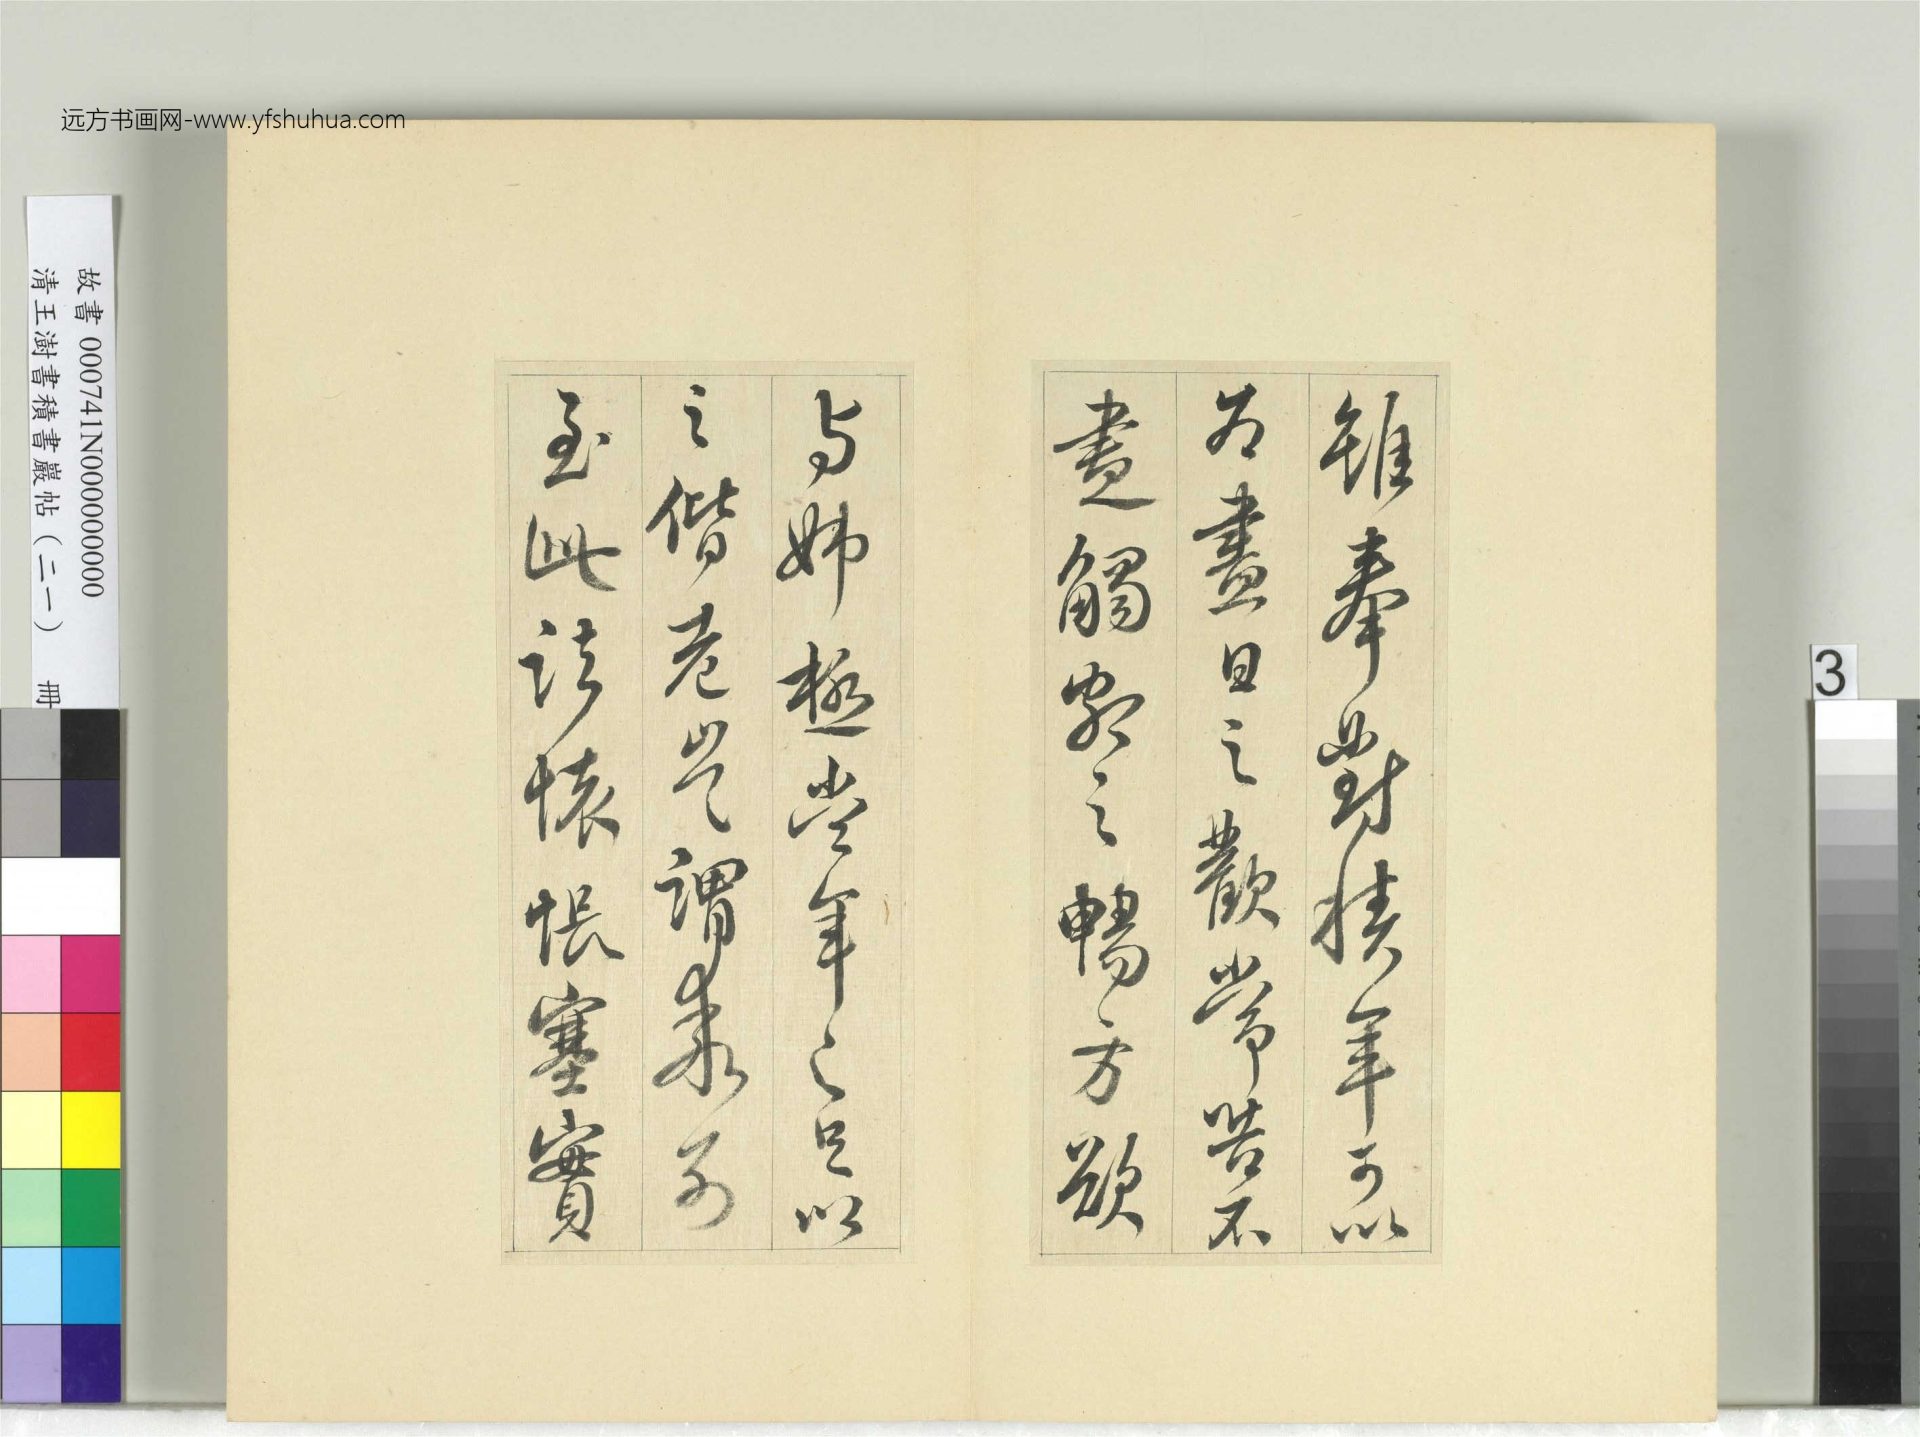 远方书画网-www.yfshuhua.com
故書 000741N000000000
清王澍書積書巖帖（二一） 冊
3
雖奉對積年可以
為盡日之歡常苦不
盡觸額之暢方欲
與姊極當年之足以
之偕老豈謂乖別
至此諸懷悵塞實